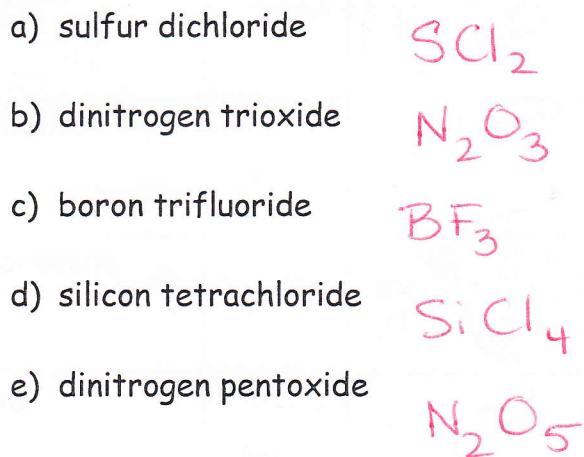 a) sulfur dichloride SCl₂
b) dinitrogen trioxide N₂O₃
c) boron trifluoride BF₃
d) silicon tetrachloride SiCl₄
e) dinitrogen pentoxide N₂O₅